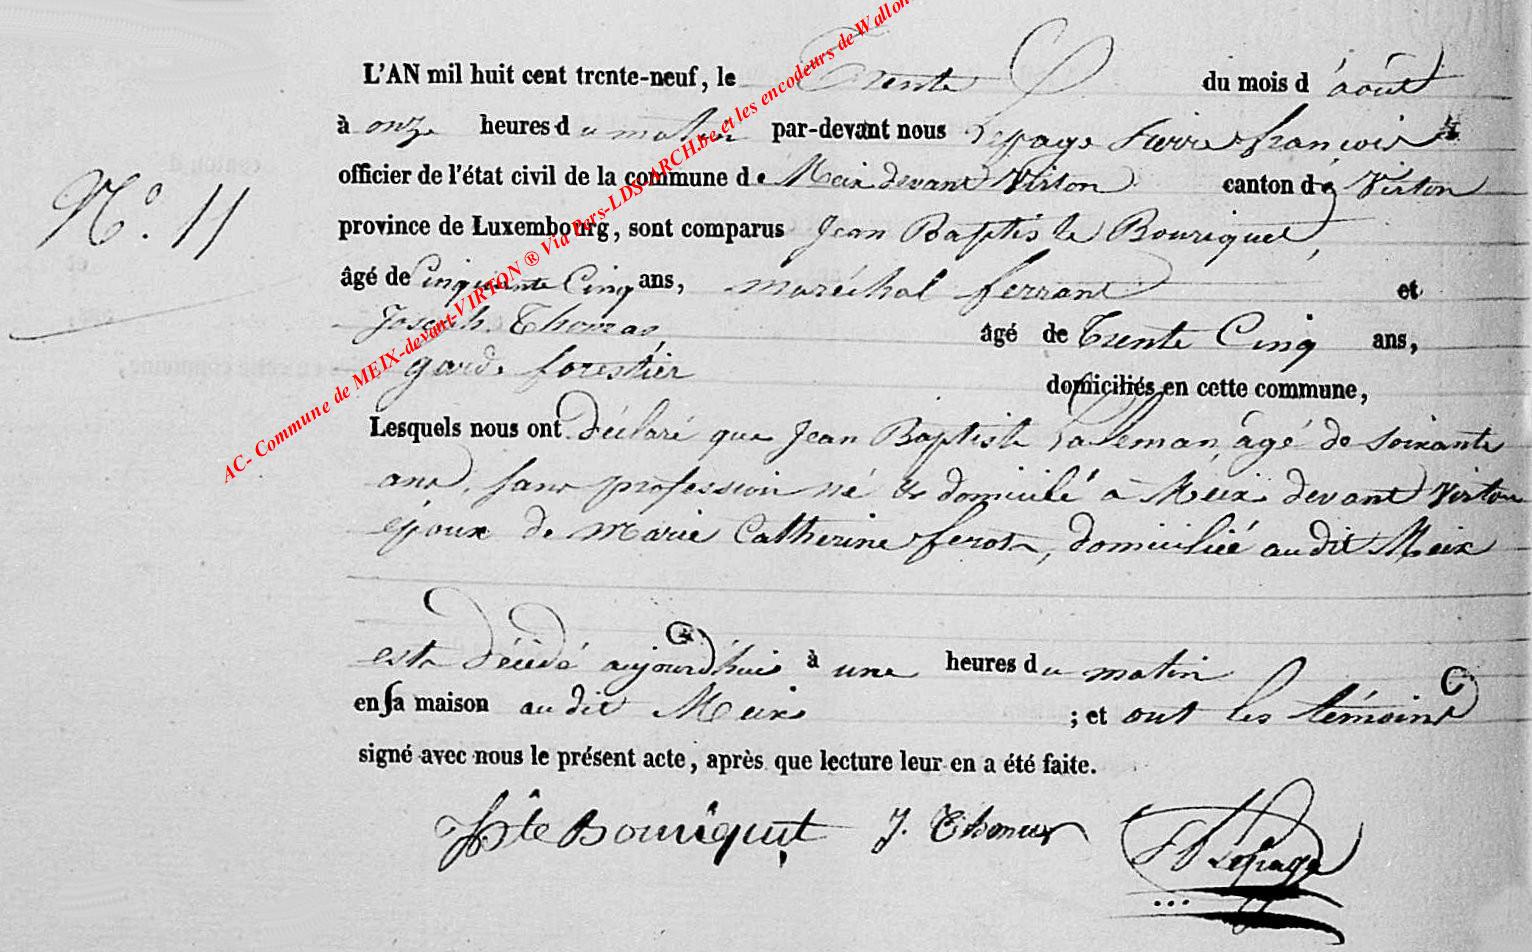 L'AN mil huit cent trente-neuf, le Trente du mois d'août
à onze heures du matin par-devant nous Lepage Pierre françois
officier de l'état civil de la commune de Meix devant Virton canton de Virton
N.° 11
province de Luxembourg, sont comparus Jean Baptiste Bouriquet,
âgé de Cinquante Cinq ans, maréchal ferrant et
Joseph Thomas, âgé de Trente Cinq ans,
garde forestier
domiciliés en cette commune,
Lesquels nous ont déclaré que Jean Baptiste Lalleman, âgé de soixante
ans, sans profession né & domicilié à Meix devant Virton
époux de Marie Catherine ferot, domiciliée audit Meix
est décédé aujourd'hui à une heures du matin
en sa maison audit Meix ; et ont les témoins
signé avec nous le présent acte, après que lecture leur en a été faite.
Bouriquet J. Thomas Lepage
AC- Commune de MEIX-devant-VIRTON ® Via Pers-LDS-ARCH.be et les encodeurs de Wallon